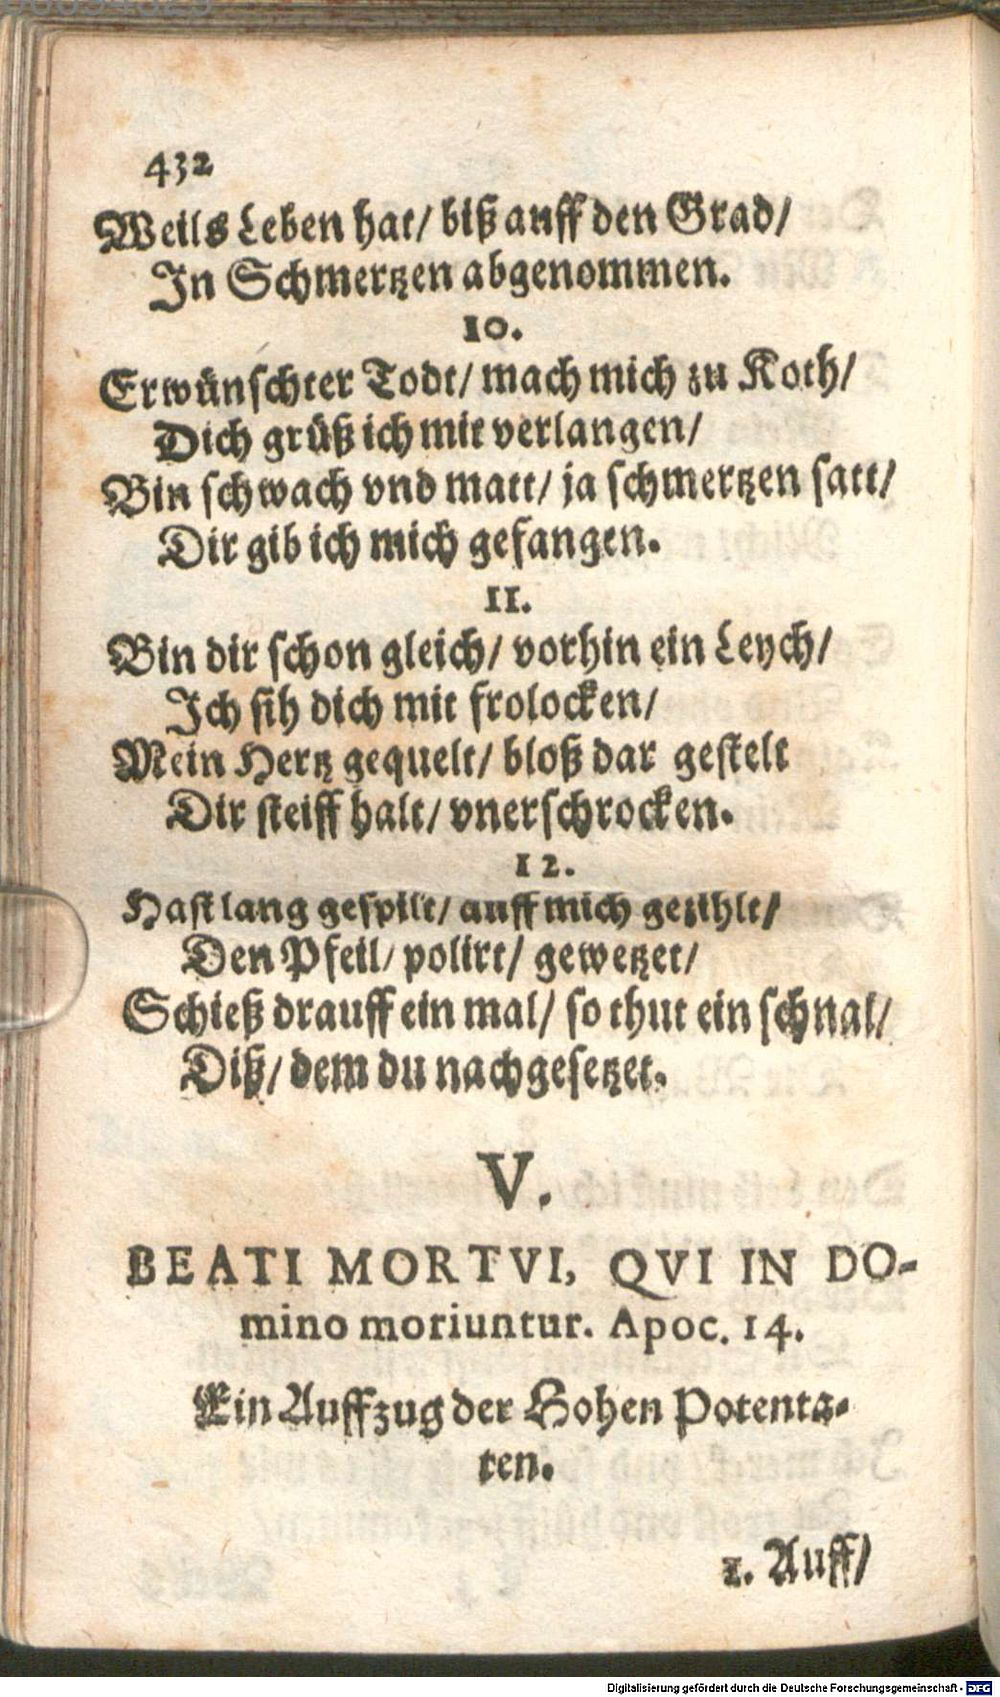 432
Weils Leben hat/ biß auff den Grad/
In Schmertzen abgenommen.
10.
Erwünschter Todt/ mach mich zu Koth/
Dich grüß ich mit verlangen/
Bin schwach vnd matt/ ja schmertzen satt/
Dir gib ich mich gefangen.
11.
Bin dir schon gleich/ vorhin ein Leych/
Ich sih dich mit frolocken/
Mein Hertz gequelt/ bloß dar gestelt
Dir steiff halt/ vnerschrocken.
12.
Hast lang gespilt/ auff mich gezihlt/
Den Pfeil/ polirt/ gewetzet/
Schieß drauff ein mal/ so thut ein schnal/
Diß/ dem du nachgesetzet.
V.
BEATI MORTVI, QVI IN DO-
mino moriuntur. Apoc. 14.
Ein Auffzug der Hohen Potenta-
ten.
1. Auff/
Digitalisierung gefördert durch die Deutsche Forschungsgemeinschaft - DFG